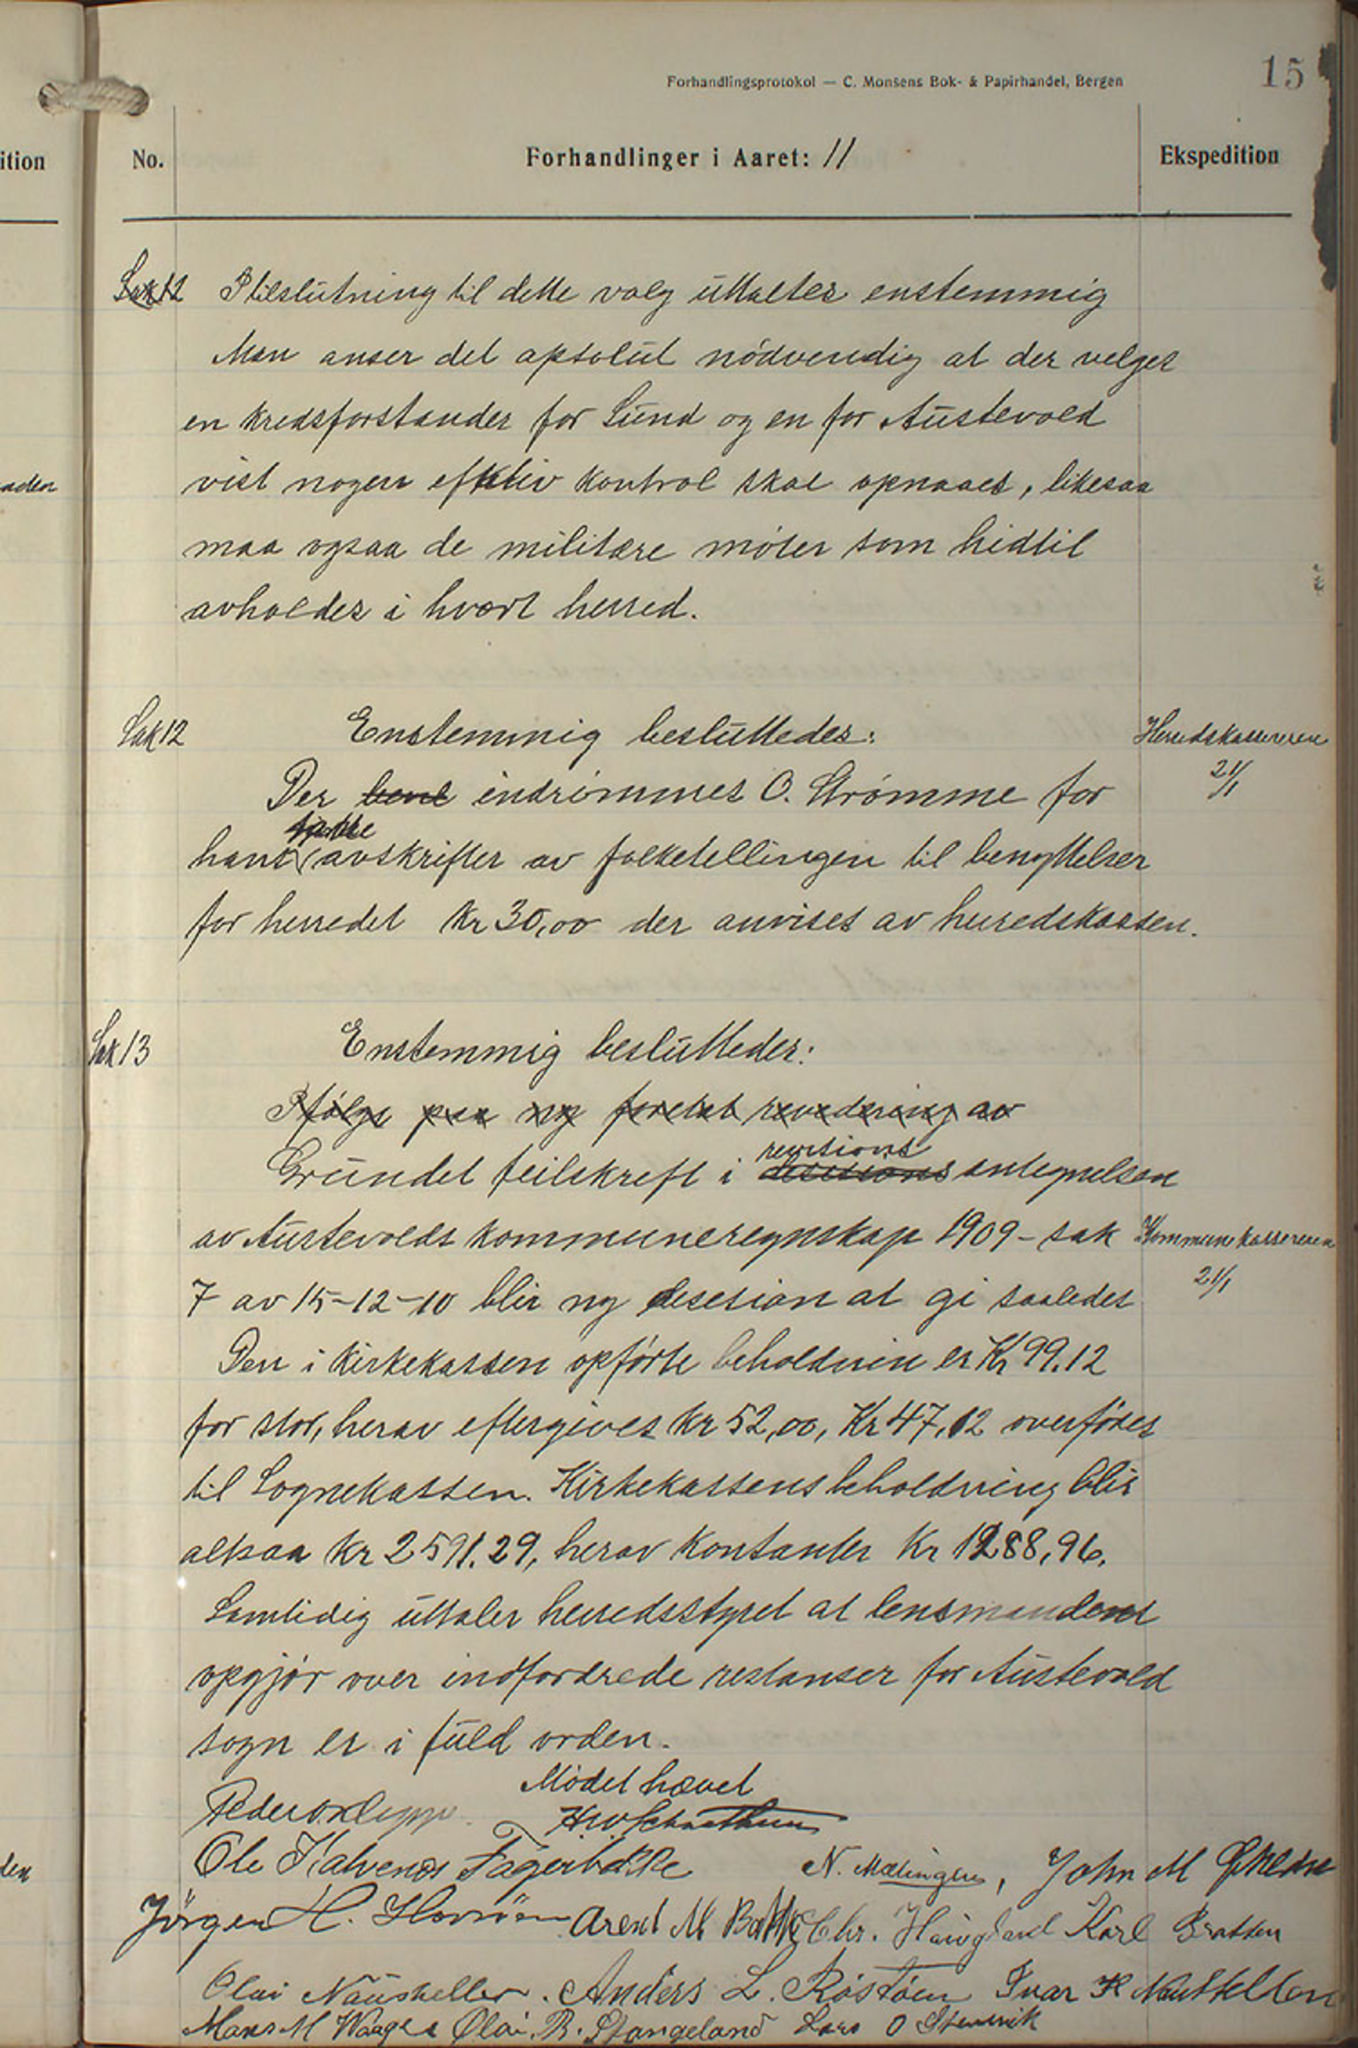 15
Forhandlingsprotokol — C. Monsens Bok- & Papirhandel, Bergen
ition
No.
Forhandlinger i Aaret: 11
Ekspedition
Sak 12 I tilslutning til dette valg uttaltes enstemmig
Man anser det apsolut nödvendig at der velges
en kredsforstander for Sund og en for Austevold
vist nogen efktiv kontrol skal opnaaes, likesaa
aden
maa ogsaa de militære möter som hidtil
avholdes i hvært herred.
Sak 12 Enstemmig besluttedes:
Herredskassereren
21/1
Der bevl indrömmes O. Strömme for
hans avskrifter av folketellingen til benyttelser
for herredet Kr 30,00 der anvises av herredskassen.
Sak 13 Enstemmig besluttedes:
Ifölge paa ny foretat revidering av
revisions
Grundet feilskreft i desesions antegnelsen
av Austevolds kommuneregnskap 1909 - sak
Kommunekassereren
21/1
7 av 15-12-10 blir ny desesion at gi saaledes
Den i Kirkekassen opförte beholdnin er Kr 99.12
for stor, herav eftergives Kr 52,00, Kr 47,12 overföres
til Sognekassen. Kirkekassens beholdning blir
alsaa Kr 2591.29, herav Kontanter Kr 1288,96.
Samtidig uttaler herredsstyret at lensmandens
opgjör over indfordrede restanser for Austevold
sogn er i fuld orden.
Mödet hævet
Peder
Ole Kalvenes Fagerbakke N. Mælingen, John M
den
Jörgen H. Arent M Bakk Chr. Haugland Karl Bratten
Olai Naustheller. Anders L. Röstöen Ivar K Naustheller
Mons M Waage Olai. B. Stangeland Lars O Stenevik